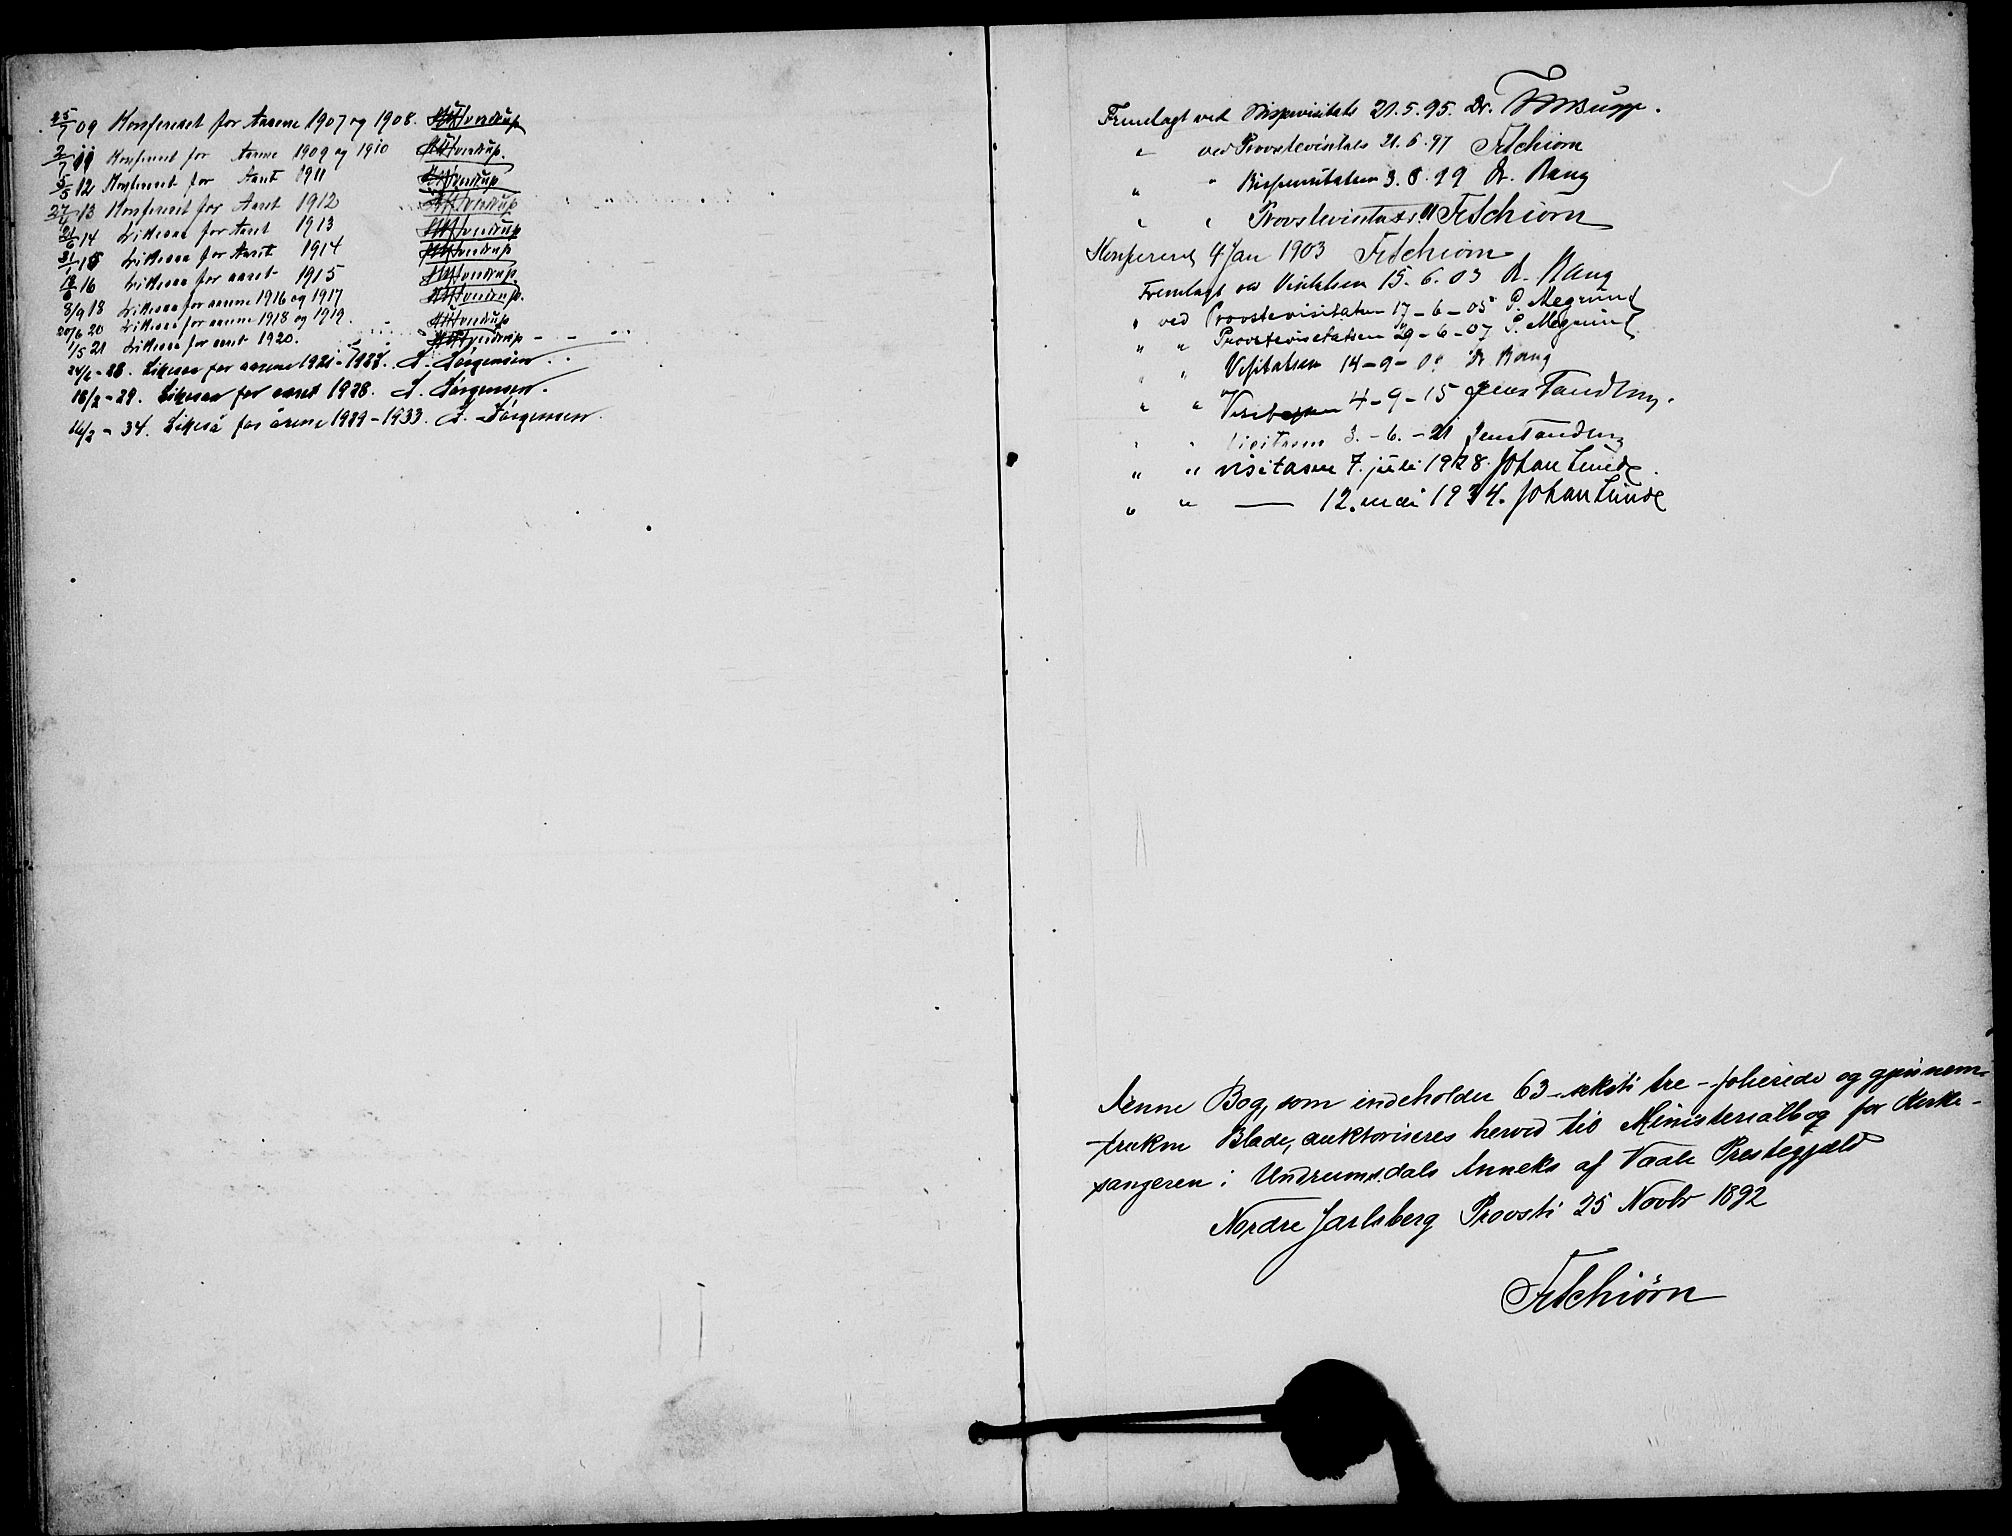 25/7 09 Konfereret for Aarene 1907 og 1908.
2/7 11 Konfereret for Aarene 1909 og 1910
5/5 12 Konfereret for Aaret 1911
27/ 13 Konfereret for Aaret 1912
21/6 14 Likesaa for Aaret 1913
31/1 15 Likesaa for Aaret 1914
18/ 16 Likesaa for aaret 1915
8/9 18 Likesaa for aarene 1916 og 1917
20/6 20 Likesaa for aarene 1918 og 1919.
1/5 21 Likesaa for aaret 1920.
24/2 - 28. Likesaa for aarene 1921 - 1927. A. Jørgensen
18/2 - 29. Likesaa for aaret 1928. A. Jørgensen.
16/2 - 34. Likeså for årene 1929 - 1933. A. Jørgensen.
Fremlagt ved Bispevisitats 21.5.95. Dr.
" ved Provstevisitats 21.6.97 FTschiørn
" " Bispevisitatsen 3.8.99 Dr. Bang
" " Provstevisitats FTschiørn
Konfereret 9 Jan 1903 FTschiørn
Fremlagt ved Visitatsen 15.6.03 Dr. Bang
" ved Provstevisitatsen 17-6-05 P. Magnind
" " Provstevisitatsen 29-6-07 P. Magnind
" " Visitatsen 14-9-0 Dr Bang
" " 4-9-15 Jens Tandberg.
" " visitasen 3.-6.-21 Jens Tandberg
" " visitasen 7. juli 1928. Johan Lunde.
" " — 12. mai 1934. Johan Lunde
Denne Bog, som indeholder 63 - seksti tre - folierede og gjennem-
trukne Blade, auktoriseres herved til Ministerialbog for Kirke-
sangeren i Undrumsdals Anneks af Vaale Prestegjæld
Nordre Jarlsberg Provsti 25 Novbr 1892
FTschiørn